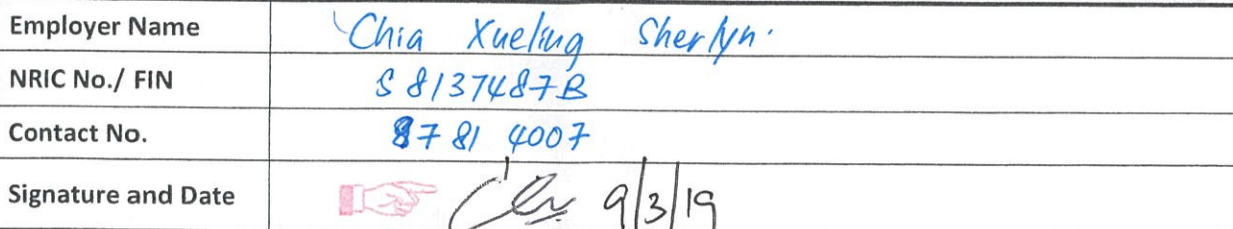 Employer Name Chia Xueling Sherlyn.
NRIC No./ FIN S8137487B
Contact No. 8781 4007
Signature and Date 9/3/19